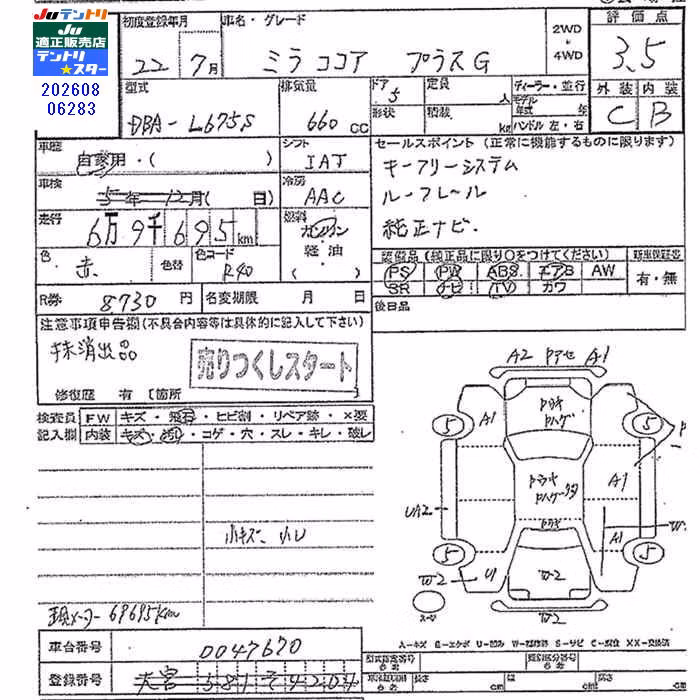 Juテントリ
Ju
適正販売店
テントリ
★スター
202608
06283
初度登録年月
22 7月
車名・グレード
ミラココア プラスG
2WD
4WD
評価点
3.5
型式
DBA-L675S
排気量
660 CC
ドア
5
形状
定員
人
積載
kg
ディーラー・並行
モデル年式 年
ハンドル 左・右
外装 内装
C B
車歴
自家用・( )
シフト
IAT
セールスポイント (正常に機能するものに限ります)
キーフリーシステム
ルーフレール
純正ナビ.
車検
5年12月( 日)
冷房
AAC
走行
6万9千695km
燃料
ガソリン
軽油
( )
色
赤
色替
色コード
R40
装備品 (純正品に限り○をつけてください)
PS PW ABS エアB AW
SR ナビ TV カワ
新車保証書
有・無
R券 8730円
名変期限 月 日
後日品
注意事項申告欄(不具合内容等は具体的に記入して下さい)
抹消出品
売りつくしスタート
修復歴 有 [箇所 ]
検査員 FW キズ・飛石・ヒビ割・リペア跡・×要
記入欄 内装 キズ・汚れ・コゲ・穴・スレ・キレ・破レ
A2 Pアセ A1
A1
Pキキ
Pハゲ
5 5
Pキキ
A1
UA2
A1
W
5 5
W-2 U1 W-2
W-2
小キズ、小U
現メーター69695km
A-キズ E-エクボ U-凹み W-補修跡 S-サビ C-腐食 XX-交換済
車台番号 0047670
型式指定番号
類別区分番号
登録番号 大宮 581 そ 4204
長さ cm 幅 cm 高さ cm